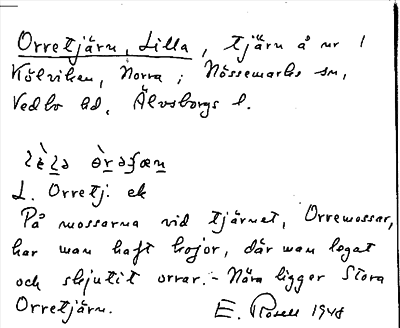 Orretjärn, Lilla, tjärn å nr 1
Kölviken, Norra; Nössemarks sn,
Vedbo hd, Älvsborgs l.
L. Orretj. ek
På mossarna vid tjärnet, Orremossar,
har man haft kojor, där man legat
och skjutit orrar. - Nära ligger Stora
Orretjärn. E. Rosell 1948